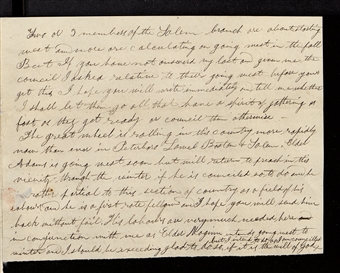 Two or 3 members of the Salem branch are about starting
west and more are calculating on going west in the fall
But if you have not answered my last and given me the
council I asked relative to their going west before you
get this I hope you will write immediately on till me whether
I shall let them go all that have a spirit of gathering as
fast as they get ready or council them otherwise -
The great wheel is rolling in this country more rapidly
now than ever in Peterboro Lowel Boston & Salem. Elder
Adams is going west soon but will return to preach in this
vicinity through the winter if he is conceled so to do and he
rather partial to this section of country as a field of his
labour and he is a first rate fellow and I hope you will send him
back without fail. His labours are very much needed here
in conjunction with me as Elder Maginn intends going west to
winter and I should be exceeding glad to do so, if it is the will of God
but I intend to do as I am councilled